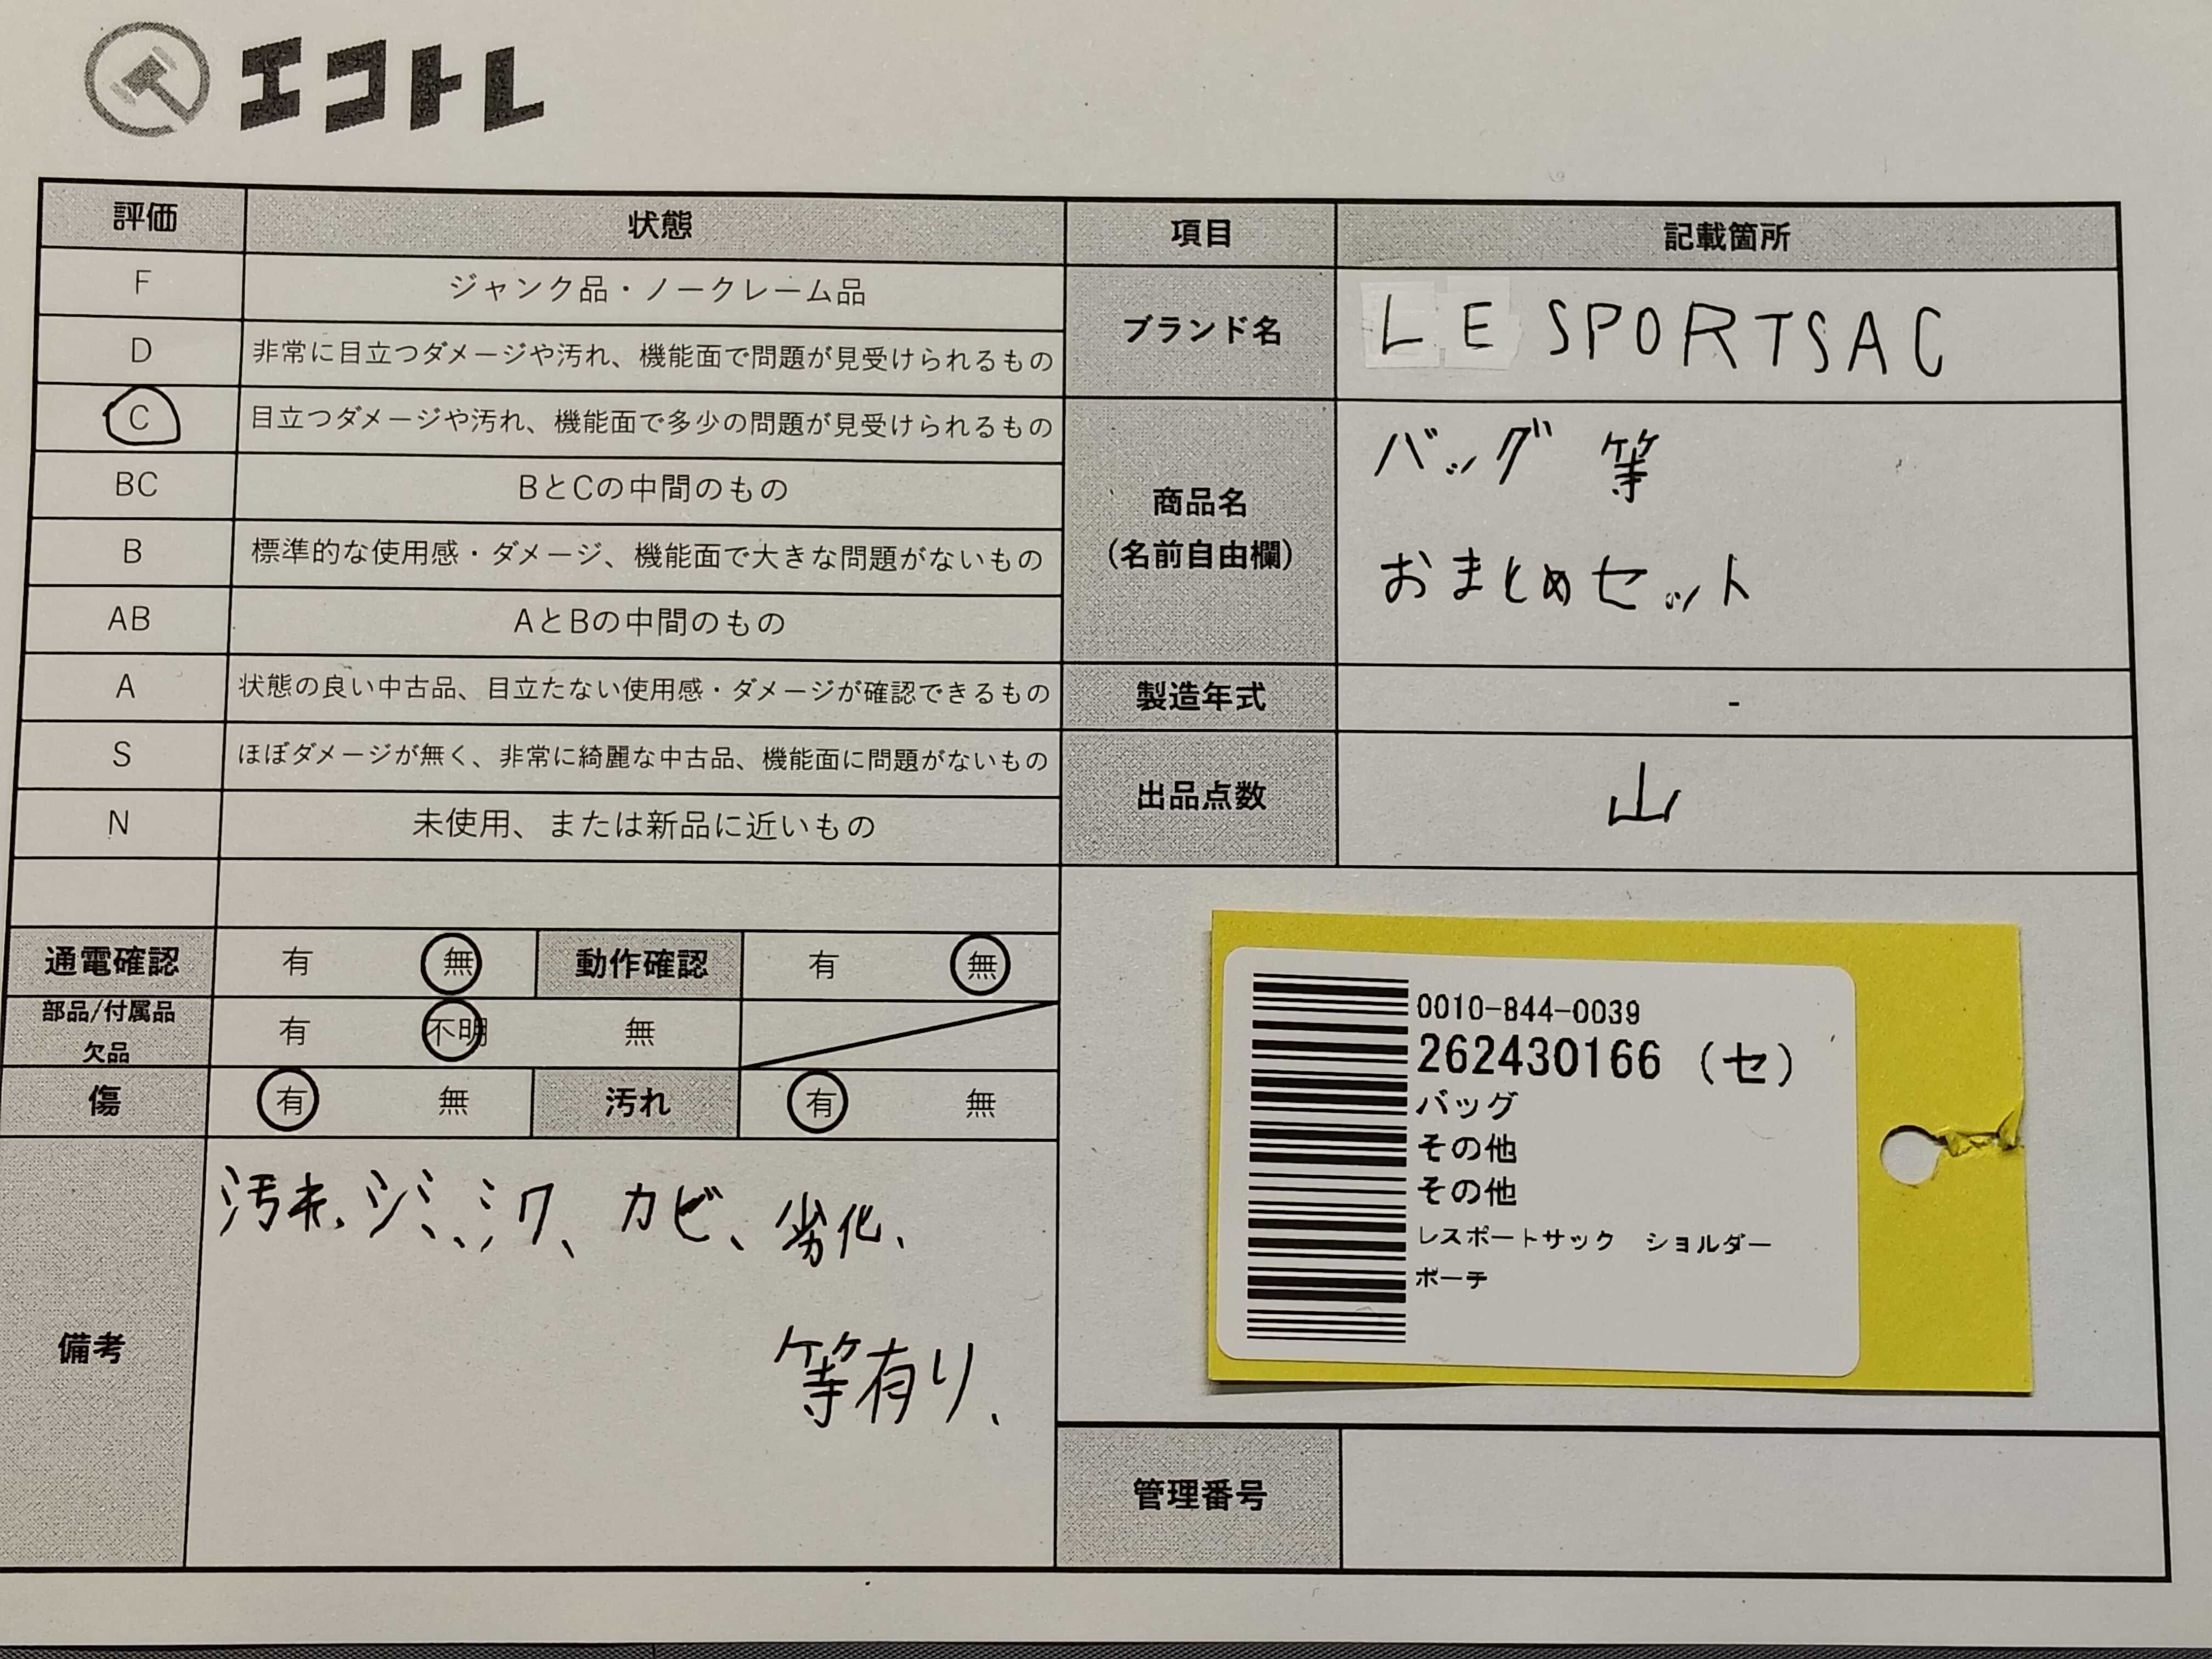 エコトレ
評価 状態 項目 記載箇所
F ジャンク品・ノークレーム品
D 非常に目立つダメージや汚れ、機能面で問題が見受けられるもの
C 目立つダメージや汚れ、機能面で多少の問題が見受けられるもの
BC BとCの中間のもの
B 標準的な使用感・ダメージ、機能面で大きな問題がないもの
AB AとBの中間のもの
A 状態の良い中古品、目立たない使用感・ダメージが確認できるもの
S ほぼダメージが無く、非常に綺麗な中古品、機能面に問題がないもの
N 未使用、または新品に近いもの
ブランド名 LE SPORTSAC
商品名
(名前自由欄)
バッグ 等
おまとめセット
製造年式 -
出品点数 山
通電確認 有 無 動作確認 有 無
部品/付属品
欠品
有 不明 無
傷 有 無 汚れ 有 無
備考
汚れ、シミ、シワ、カビ、劣化、
等有り、
0010-844-0039
262430166 (セ)
バッグ
その他
その他
レスポートサック ショルダー
ポーチ
管理番号